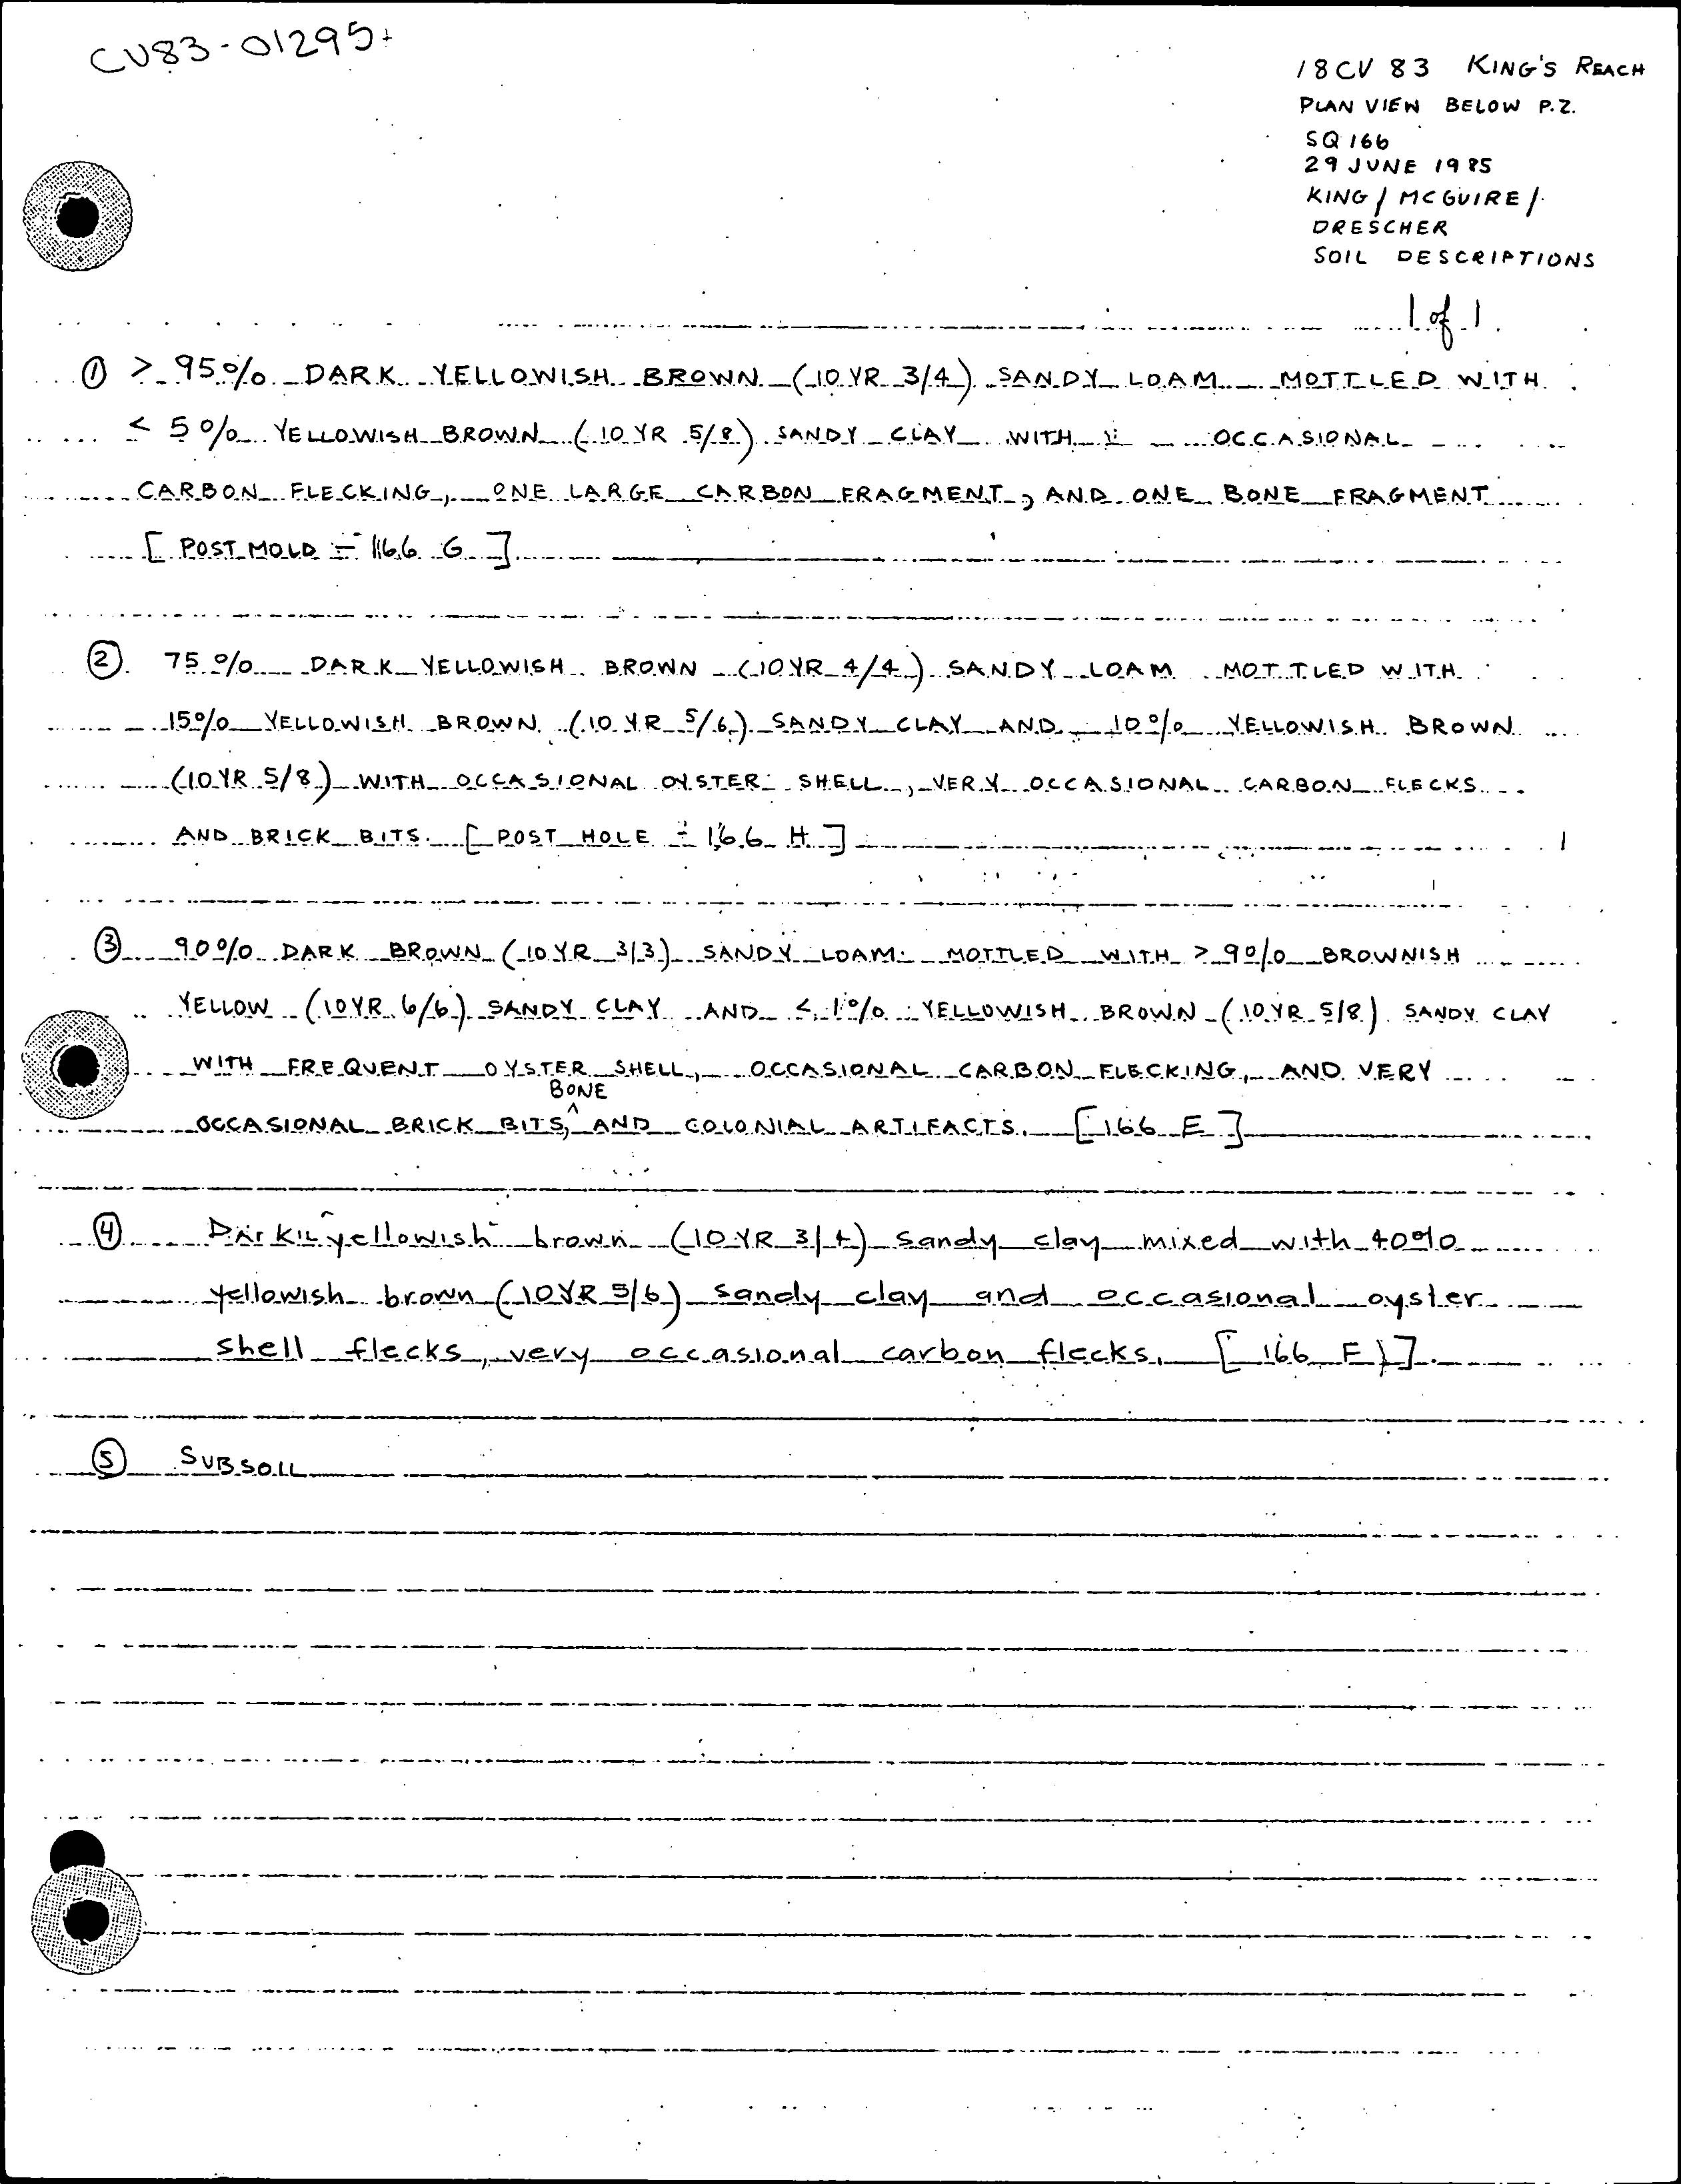 CU83-01295
18 CV 83 KING'S REACH
PLAN VIEW BELOW P.Z.
SQ 166
29 JUNE 1985
KING / MCGUIRE /
DRESCHER
SOIL DESCRIPTIONS
1 of 1
① > 95% DARK YELLOWISH BROWN (10 YR 3/4) SANDY LOAM MOTTLED WITH
< 5% YELLOWISH BROWN (10 YR 5/8) SANDY CLAY WITH OCCASIONAL
CARBON FLECKING, ONE LARGE CARBON FRAGMENT, AND ONE BONE FRAGMENT
[POST MOLD - 166 G]
② 75% DARK YELLOWISH BROWN (10YR 4/4) SANDY LOAM MOTTLED WITH
15% YELLOWISH BROWN (10 YR 5/6) SANDY CLAY AND 10% YELLOWISH BROWN
(10YR 5/8) WITH OCCASIONAL OYSTER SHELL, VERY OCCASIONAL CARBON FLECKS
AND BRICK BITS. [POST HOLE - 166 H]
③ 90% DARK BROWN (10 YR 3/3) SANDY LOAM MOTTLED WITH > 9% BROWNISH
YELLOW (10YR 6/6) SANDY CLAY AND < 1% YELLOWISH BROWN (10 YR 5/8) SANDY CLAY
WITH FREQUENT OYSTER SHELL, OCCASIONAL CARBON FLECKING, AND VERY
BONE
OCCASIONAL BRICK BITS, ^ AND COLONIAL ARTIFACTS. [166 E]
④ Dark yellowish brown (10 YR 3/4) sandy clay mixed with 40%
yellowish brown (10YR 5/6) sandy clay and occasional oyster
shell flecks, very occasional carbon flecks. [166 F]
⑤ SUBSOIL